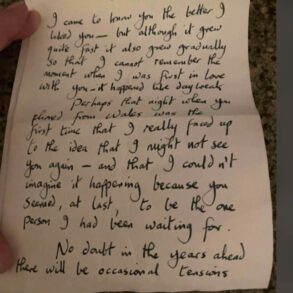 I came to know you the better I
liked you — but although it grew
quite fast it also grew gradually
so that I cannot remember the
moment when I was first in love
with you - it happened like daybreak
Perhaps that night when you
phoned from Wales was the
first time that I really faced up
to the idea that I might not see
you again — and that I couldn't
imagine it happening because you
seemed, at last, to be the one
person I had been waiting for.
No doubt in the years ahead
there will be occasional tensions